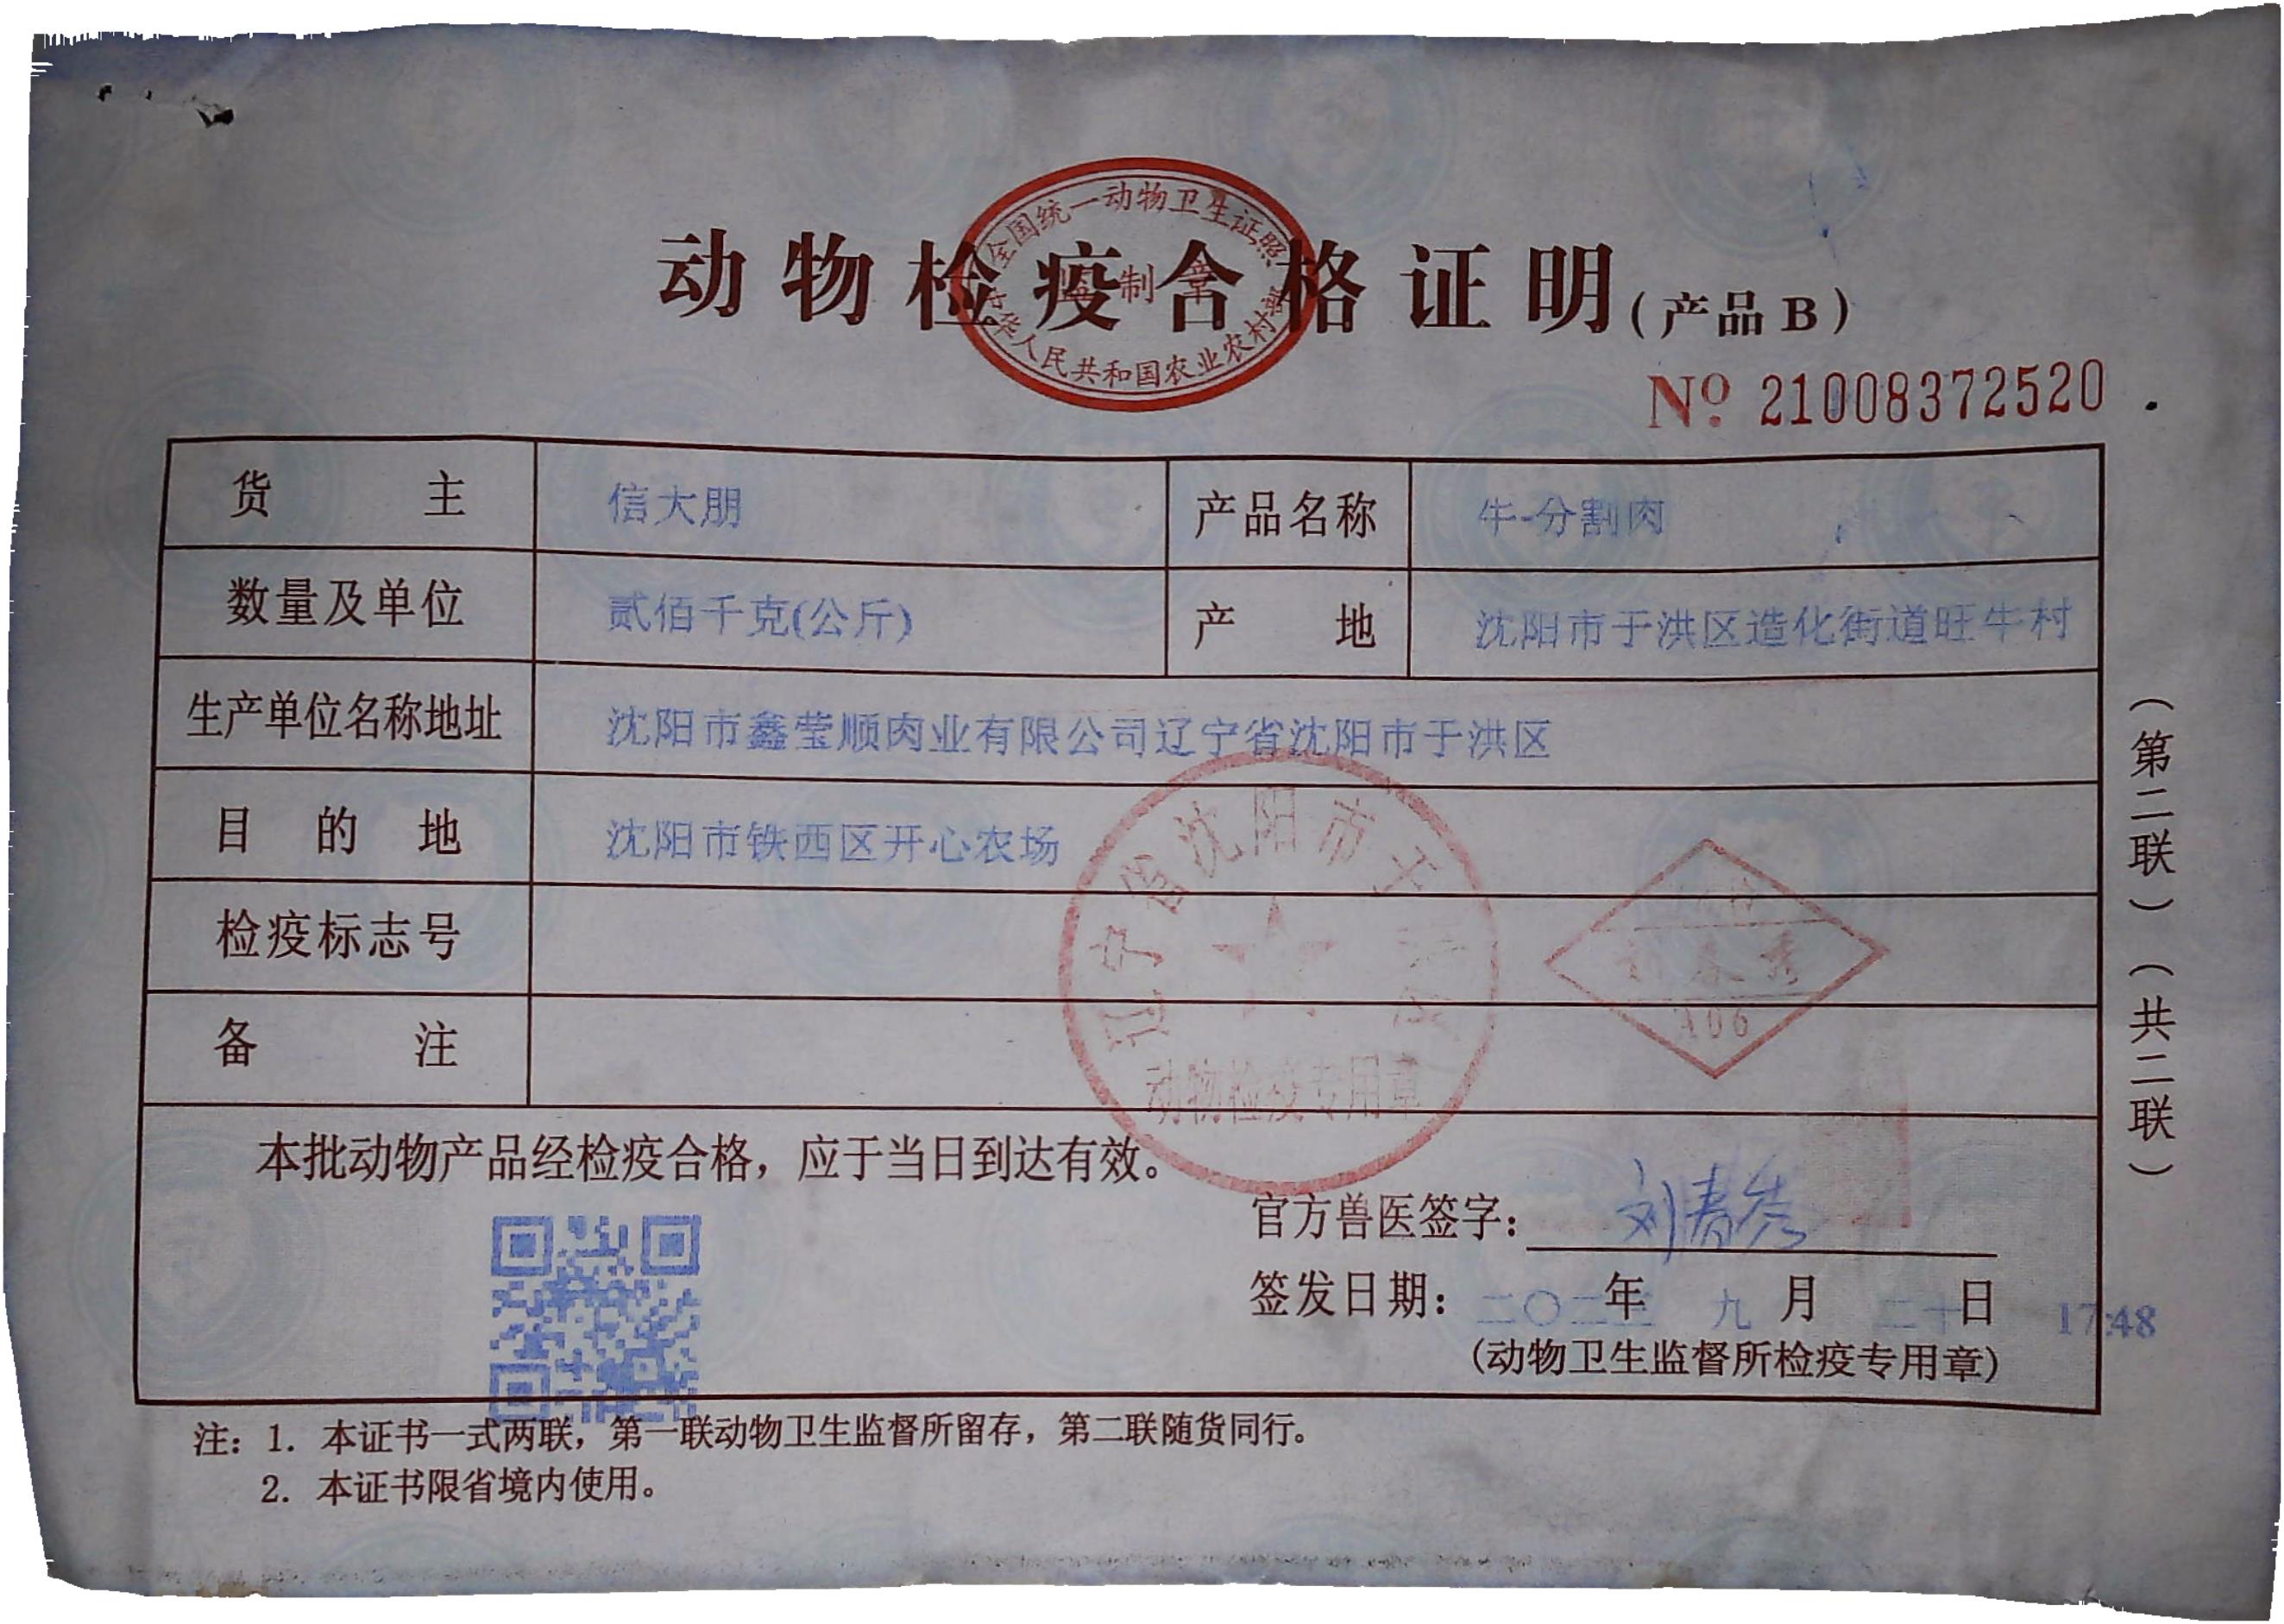 动物检疫合格证明(产品B)
全国统一动物卫生证照
监制章
中华人民共和国农业农村部
№ 21008372520
货主 信大朋 产品名称 牛-分割肉
数量及单位 贰佰千克(公斤) 产地 沈阳市于洪区造化街道旺牛村
生产单位名称地址 沈阳市鑫莹顺肉业有限公司辽宁省沈阳市于洪区
目的地 沈阳市铁西区开心农场
检疫标志号
备注
辽宁省沈阳市于洪区
动物检疫专用章
A06
本批动物产品经检疫合格，应于当日到达有效。
官方兽医签字： 刘春秀
签发日期： 年 九 月 二十 日 17:48
(动物卫生监督所检疫专用章)
注：1. 本证书一式两联，第一联动物卫生监督所留存，第二联随货同行。
2. 本证书限省境内使用。
（第二联）（共二联）